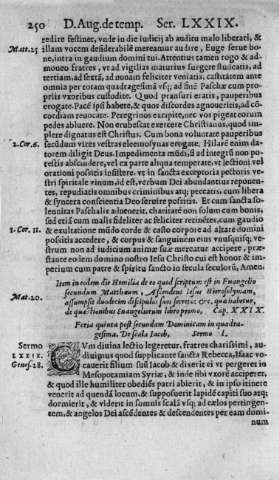 250 D. Aug. de temp. Ser. LXXIX.
redire festinet, vnde in die iudicij ab auditu malo liberari, &
Mat. 25 illam vocem desiderabilē mereamur audire, Euge serue bo-
ne, intra in gaudium domini tui. Attentius tamen rogo & ad-
moneo fratres, vt ad vigilias maturius surgere studeatis, ad
tertiam, ad sextā, ad nonam feliciter veniatis, castitatem ante
omnia per totam quadragesimā vsq; ad finē Paschæ cum pro-
prijs vxoribus custodite. Quod pransuri eratis, pauperibus
erogate. Pacē ipsi habete, & quos discordes agnoueritis, ad cō-
cordiam reuocate. Peregrinos excipite, nec vos pigeat eorum
pedes abluere. Non erubescat exercere Christianus, quod im-
plere dignatus est Christus. Cum bona voluntate pauperibus
2. Cor. 9. secundum vires vestras eleemosynas erogate. Hilarē enim da-
torem diligit Deus. Impedimenta mūdi, si ad integrū non po-
testis abscindere, vel ex parte aliqua temperate, vt lectioni vel
orationi positis insistere, vt in sancta exceptoria pectoris ve-
stri spiritale vinum id est, verbum Dei abundantius reponen-
tes, repudiatis omnibus criminibus atq; peccatis, cum libera
& syncera conscientia Deo seruire positis. Et cum sancta so-
lennitas Paschalis aduenerit, charitate non solum cum bonis,
sed etiā cum malis fideliter ac feliciter retinentes, cum gaudio
1. Cor. 11. & exultatione mūdo corde & casto corpore ad altare domini
positis accedere, & corpus & sanguinem eius vnusquisq; ve-
strum non ad iudicium animæ suæ mereatur accipere, præ-
stante eodem domino nostro Iesu Christo cui est honor & im-
perium cum patre & spiritu sancto in secula seculorū, Amen.
Item in eodem die Homilia de eo quod scriptum est in Euangelio
secundum Matthæum, Ascendens Iesus Hierosolymam,
Mat. 20. assumpsit duodecim discipulos suos secretò &c. quæ habetur,
de quæstionibus Euangeliorum libro primo, Cap. XXIX.
Feria quinta post secundam Dominicam in quadra-
gesima. De scala Iacob, Sermo I.
Sermo LXXIX. CVm diuina lectio legeretur, fratres charissimi, au-
diuimus quod supplicante sancta Rebecca, Isaac vo-
Genes. 28. cauerit filium suum Iacob & dixerit ei vt pergeret in
Mesopotamiam Syriæ, & inde sibi vxorē acciperet,
& quod ille humiliter obediēs patri abierit, & in ipso itinere
venerit ad quendā locum, & supposuerit lapidē capiti suo atq;
dormierit, & viderit in somnis scalā vsq; ad cælos pertingen-
tem, & angelos Dei ascēdentes & descendentes per eam domi-
num